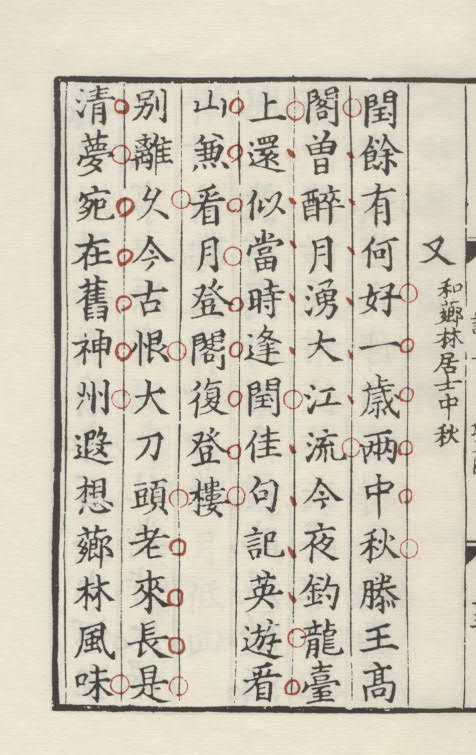 又 和薌林居士中秋
閏餘有何好一歲兩中秋滕王高
閣曾醉月湧大江流今夜釣龍臺
上還似當時逢閏佳句記英遊看
山兼看月登閣復登樓
别離久今古恨大刀頭老來長是
清夢宛在舊神州遐想薌林風味